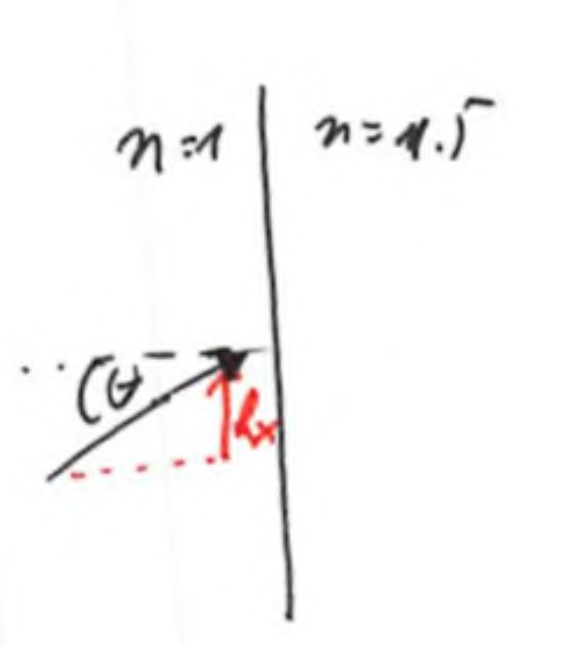 n=1 n=1.5
θ
kx